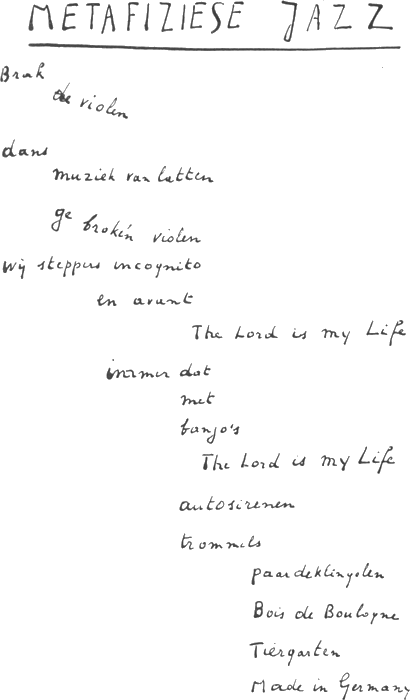 METAFIZIESE JAZZ
Brak
de violen
dans
muziek van latten
ge broken violen
wij steppers incognito
en avant
The Lord is my Life
immer dat
met
banjo's
The Lord is my Life
autosirenen
trommels
paardeklingelen
Bois de Boulogne
Tiergarten
Made in Germany